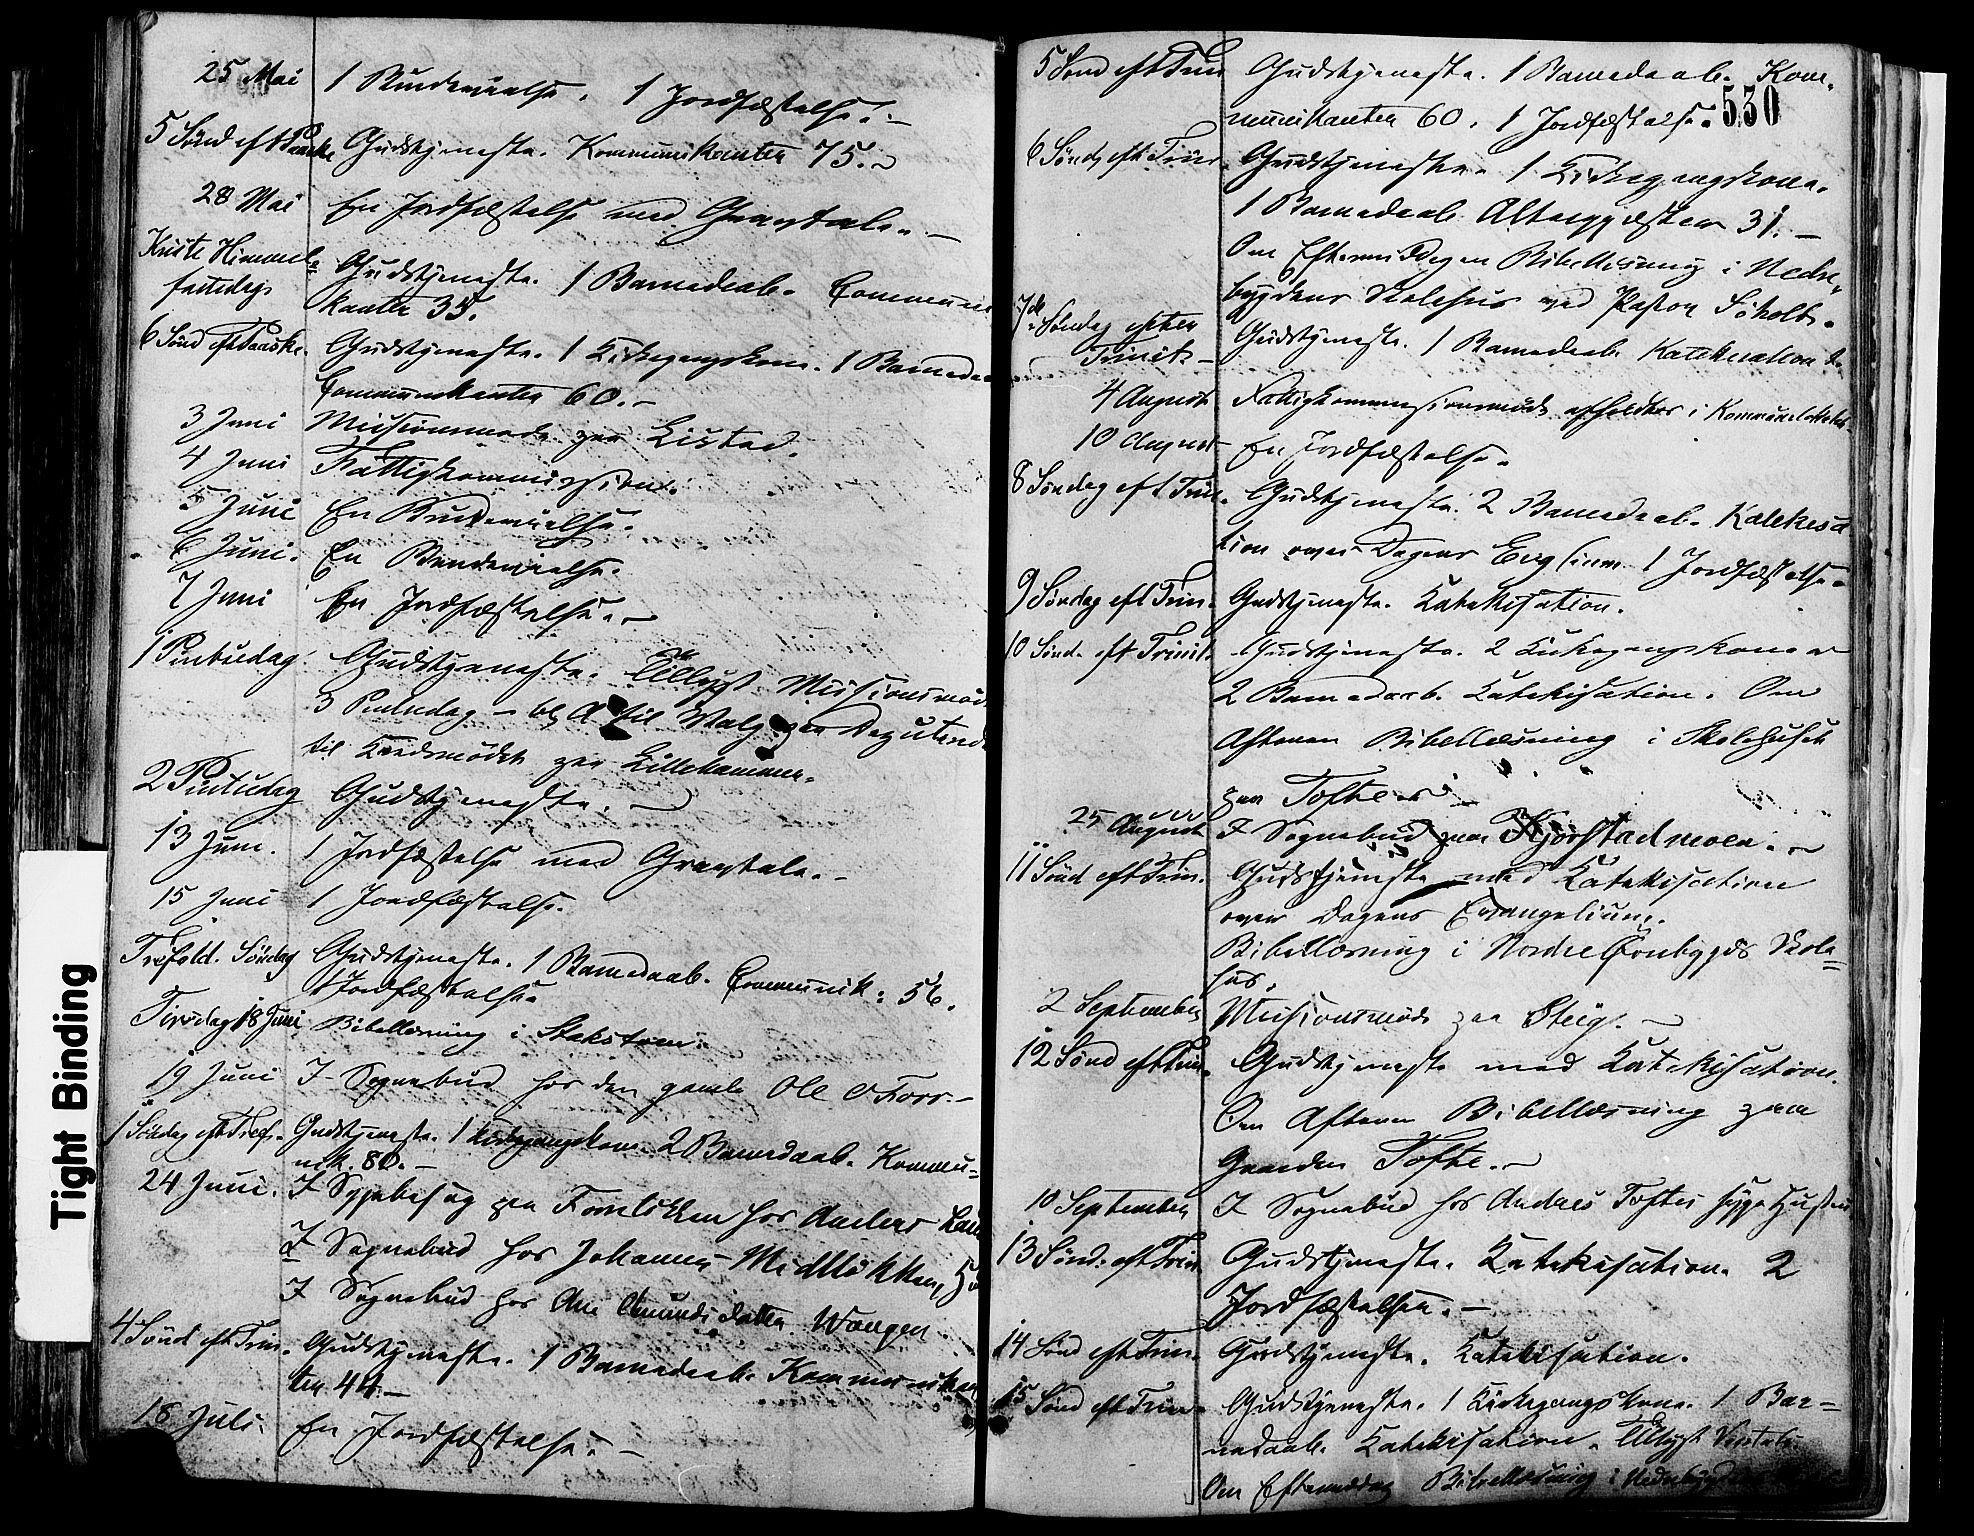 25 Mai 1 Brudevielse. 1 Jordfæstelse.
5 Sønd eft Paaske Gudstjeneste. Kommunikanter 75.
28 Mai En Jordfæstelse med Gravtale.
Kristi Himmel= Gudstjeneste. 1 Barnedaab. Communi
fartsdag. kanter 35.
6 Sønd eft Paaske. Gudstjeneste. 1 Kirkegangskone. 1 Barneda
Communikanter 60.
3 Juni Missionsmøde paa Listad.
4 Juni Fattigkommission.
5 Juni En Brudevielse.
6 Juni. En Brudevielse.
7 Juni En Jordfæstelse.
1 Pintsedag Gudstjeneste. Tillyst Missionsmøde
3 Pintsedag til Valg paa Deputerede
til Kredsmødet paa Lillehammer.
2 Pintsedag Gudstjeneste.
13 Juni. 1 Jordfæstelse med Gravtale.
15 Juni 1 Jordfæstelse.
Trefold. Søndag Gudstjeneste. 1 Barnedaab. Communik: 56.
1 Jordfæstelse
Tirsdag 18 Juni Bibellæsning i
19 Juni I Sognebud hos den gamle Ole O Forr.
1 Søndag eft Tref. Gudstjeneste. 1 Kirkegangskone. 2 Barnedaab. Kommu=
nik. 80.
24 Juni. I Sygebesøg paa hos Anders
I Sognebud hos Johannes Midtløkken,
I Sognebud hos Ane Amundsdatter Wangen.
4 Sønd eft Trin. Gudstjeneste. 1 Barnedaab. Kommunikan
ter 44.
18 Juli. En Jordfæstelse.
530
5 Sønd eft Trin Gudstjeneste. 1 Barnedaab. Kom=
munikanter 60. 1 Jordfæstelse.
6 Sønd. eft Trin. Gudstjeneste. 1 Kirkegangskone.
1 Barnedaab. Altergjæster 31.
Om Eftermiddagen Bibellæsning i Nedre
bygdens Skolehus ved Pastor
7de Søndag efter Gudstjeneste. 1 Barnedaab. Katekisation
Trinit.
4 August Fattigkommissionsmøde afholdtes i
10 August En Jordfæstelse.
8 Søndag eft Trin. Gudstjeneste. 2 Barnedaab. Katekisa
tion over Dagens Evglium 1 Jordfæstelse.
9 Søndag eft Trin. Gudstjeneste. Katekisation.
10 Sønd. eft Trinit. Gudstjeneste. 2 Kirkegangskoner
2 Barnedaab. Katekisation. Om
Aftenen Bibellæsning i Skolehuset
paa Tofte
25 August I Sognebud paa Kjørstadmoen.
11 Sønd eft Trin. Gudstjeneste med Katekisation
over Dagens Evangelium.
Bibellæsning i Nordre Skole=
hus.
2 September Missionsmøde paa Steig.
12 Sønd eft Trin. Gudstjeneste med Katekisation.
Om Aftenen Bibellæsning paa
Gaarden Tofte.
10 September I Sognebud hos Andreas Toftes syge Hustru
13 Sønd. eft Trin. Gudstjeneste. Katekisation. 2
Jordfæstelser.
14 Sønd eft Trin. Gudstjeneste. Katekisation.
15 Sønd eft Trin. Gudstjeneste. 1 Kirkegangskone. 1 Bar=
nedaab. Katekisation. Tillyst
Om Eftermiddag Bibellæsning i
Tight Binding